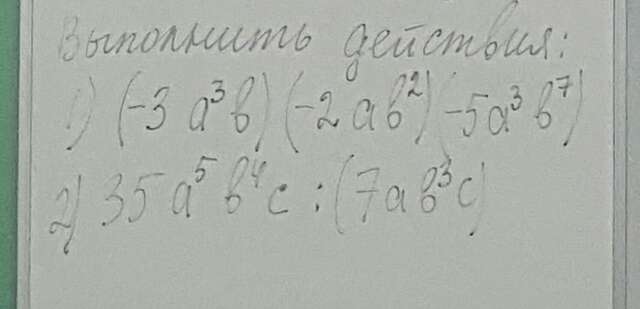 Выполнить действия:
1) (-3 a³b) (-2ab²) (-5a³b⁷)
2) 35a⁵b⁴c : (7ab³c)